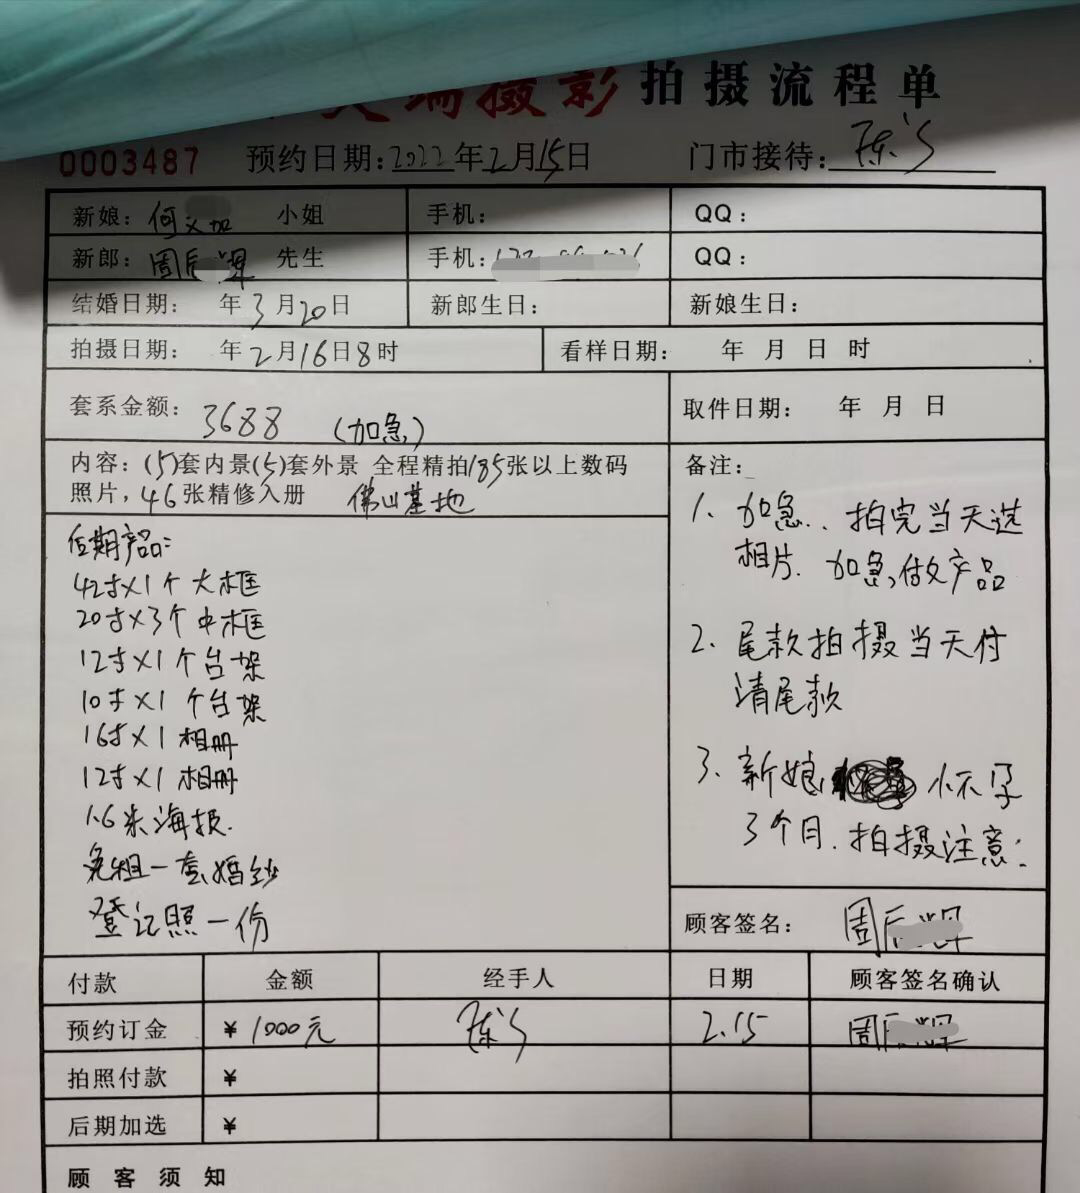 摄影 拍摄流程单
0003487 预约日期:2022年2月15日 门市接待:
新娘: 何 小姐 手机: QQ:
新郎: 周 先生 手机: QQ:
结婚日期: 年3月20日 新郎生日: 新娘生日:
拍摄日期: 年2月16日8时 看样日期: 年 月 日 时
套系金额: 3688 (加急) 取件日期: 年 月 日
内容:(5)套内景(5)套外景 全程精拍185张以上数码
照片,46张精修入册 佛山基地
后期产品:
42寸×1个大框
20寸×3个中框
12寸×1个台架
10寸×1个台架
16寸×1相册
12寸×1相册
1.6米海报.
免租一套婚纱
登记照一份
备注:
1、加急..拍完当天选
相片.加急,做产品
2、尾款拍摄当天付
清尾款
3、新娘 怀孕
3个月.拍摄注意:
顾客签名: 周
付款 金额 经手人 日期 顾客签名确认
预约订金 ¥1000元 2.15 周
拍照付款 ¥
后期加选 ¥
顾客须知